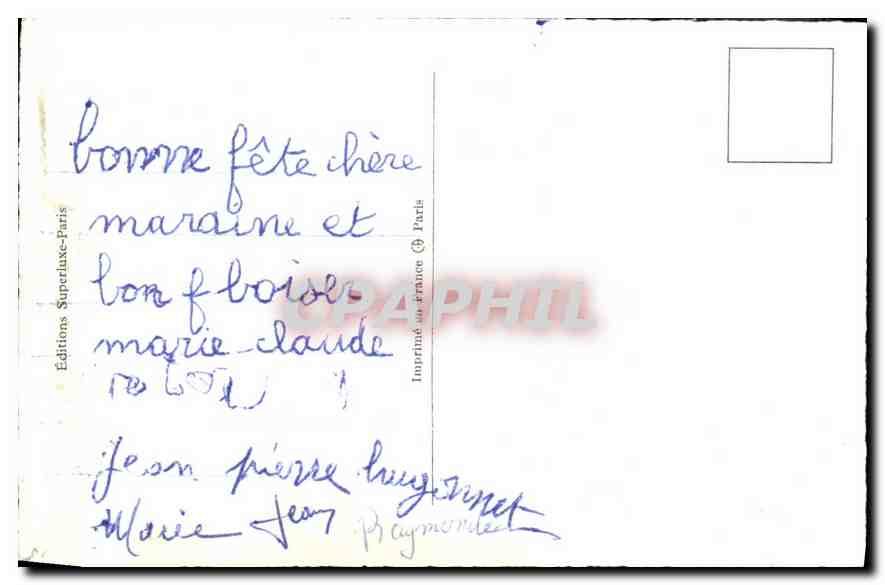 bonne fête chère
maraine et
bon f boiser
marie-claude
Jean pierre hugonnet
Marie Jean Raymonde
Éditions Superluxe-Paris
Imprimé en France Paris
CPAPHIL